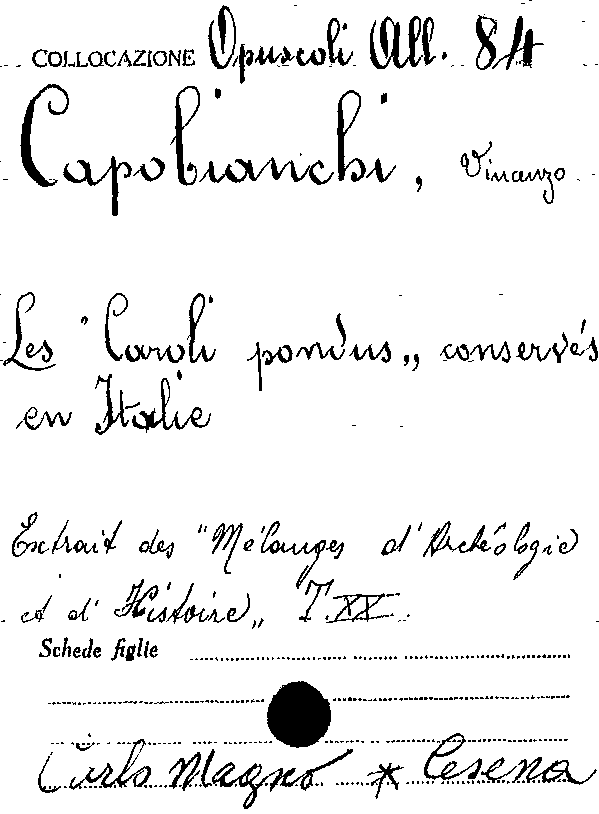 COLLOCAZIONE Opuscoli All. 84
Capobianchi, Vinanzo
Les "Caroli pondus„ conservés
en Italie
Extrait des "Mélanges d'Archéologie
et d'Histoire„ T. XX.
Schede figlie
Carlo Magno * Cesena